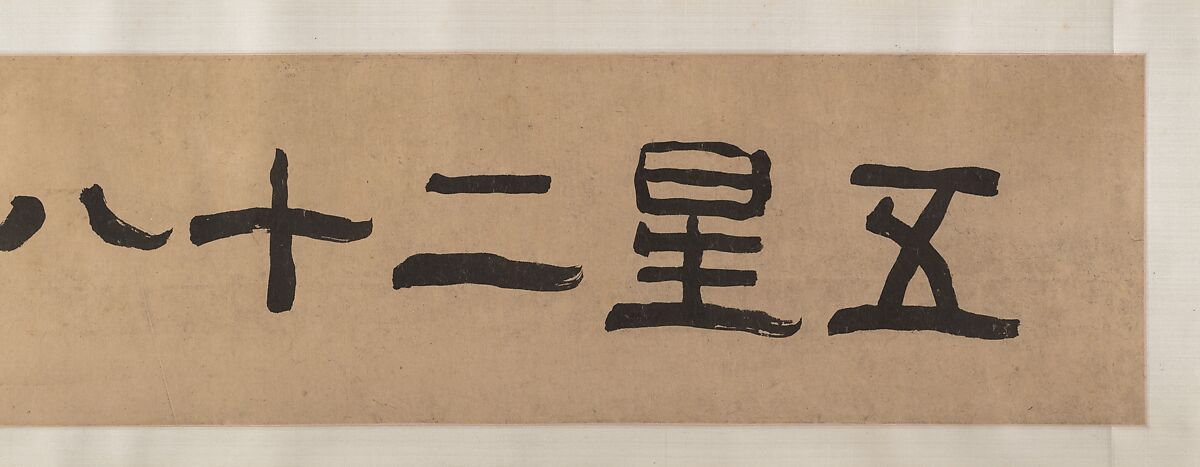 五星二十八